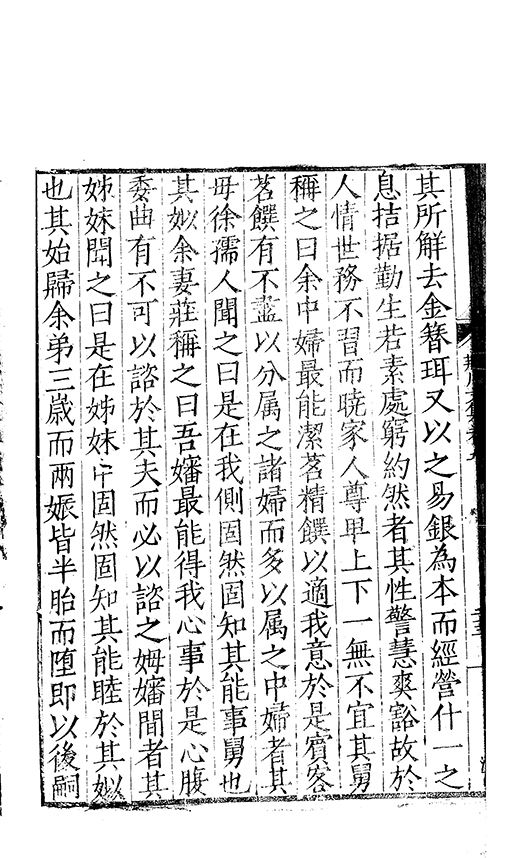 其所解去金簪珥又以之易銀為本而經營什一之
息拮据勤生若素處窮約然者其性警慧爽豁故於
人情世務不習而曉家人尊卑上下一無不宜其舅
稱之曰余中婦最能潔茗精饌以適我意於是賓客
茗饌有不盡以分属之諸婦而多以属之中婦者其
毋徐孺人聞之曰是在我側固然固知其能事舅也
其姒余妻莊稱之曰吾嬸最能得我心事於是心腹
委曲有不可以諮於其夫而必以諮之姆嬸間者其
姊妹聞之曰是在姊妹中固然固知其能睦於其姒
也其始歸余弟三歲而兩娠皆半胎而堕即以後嗣